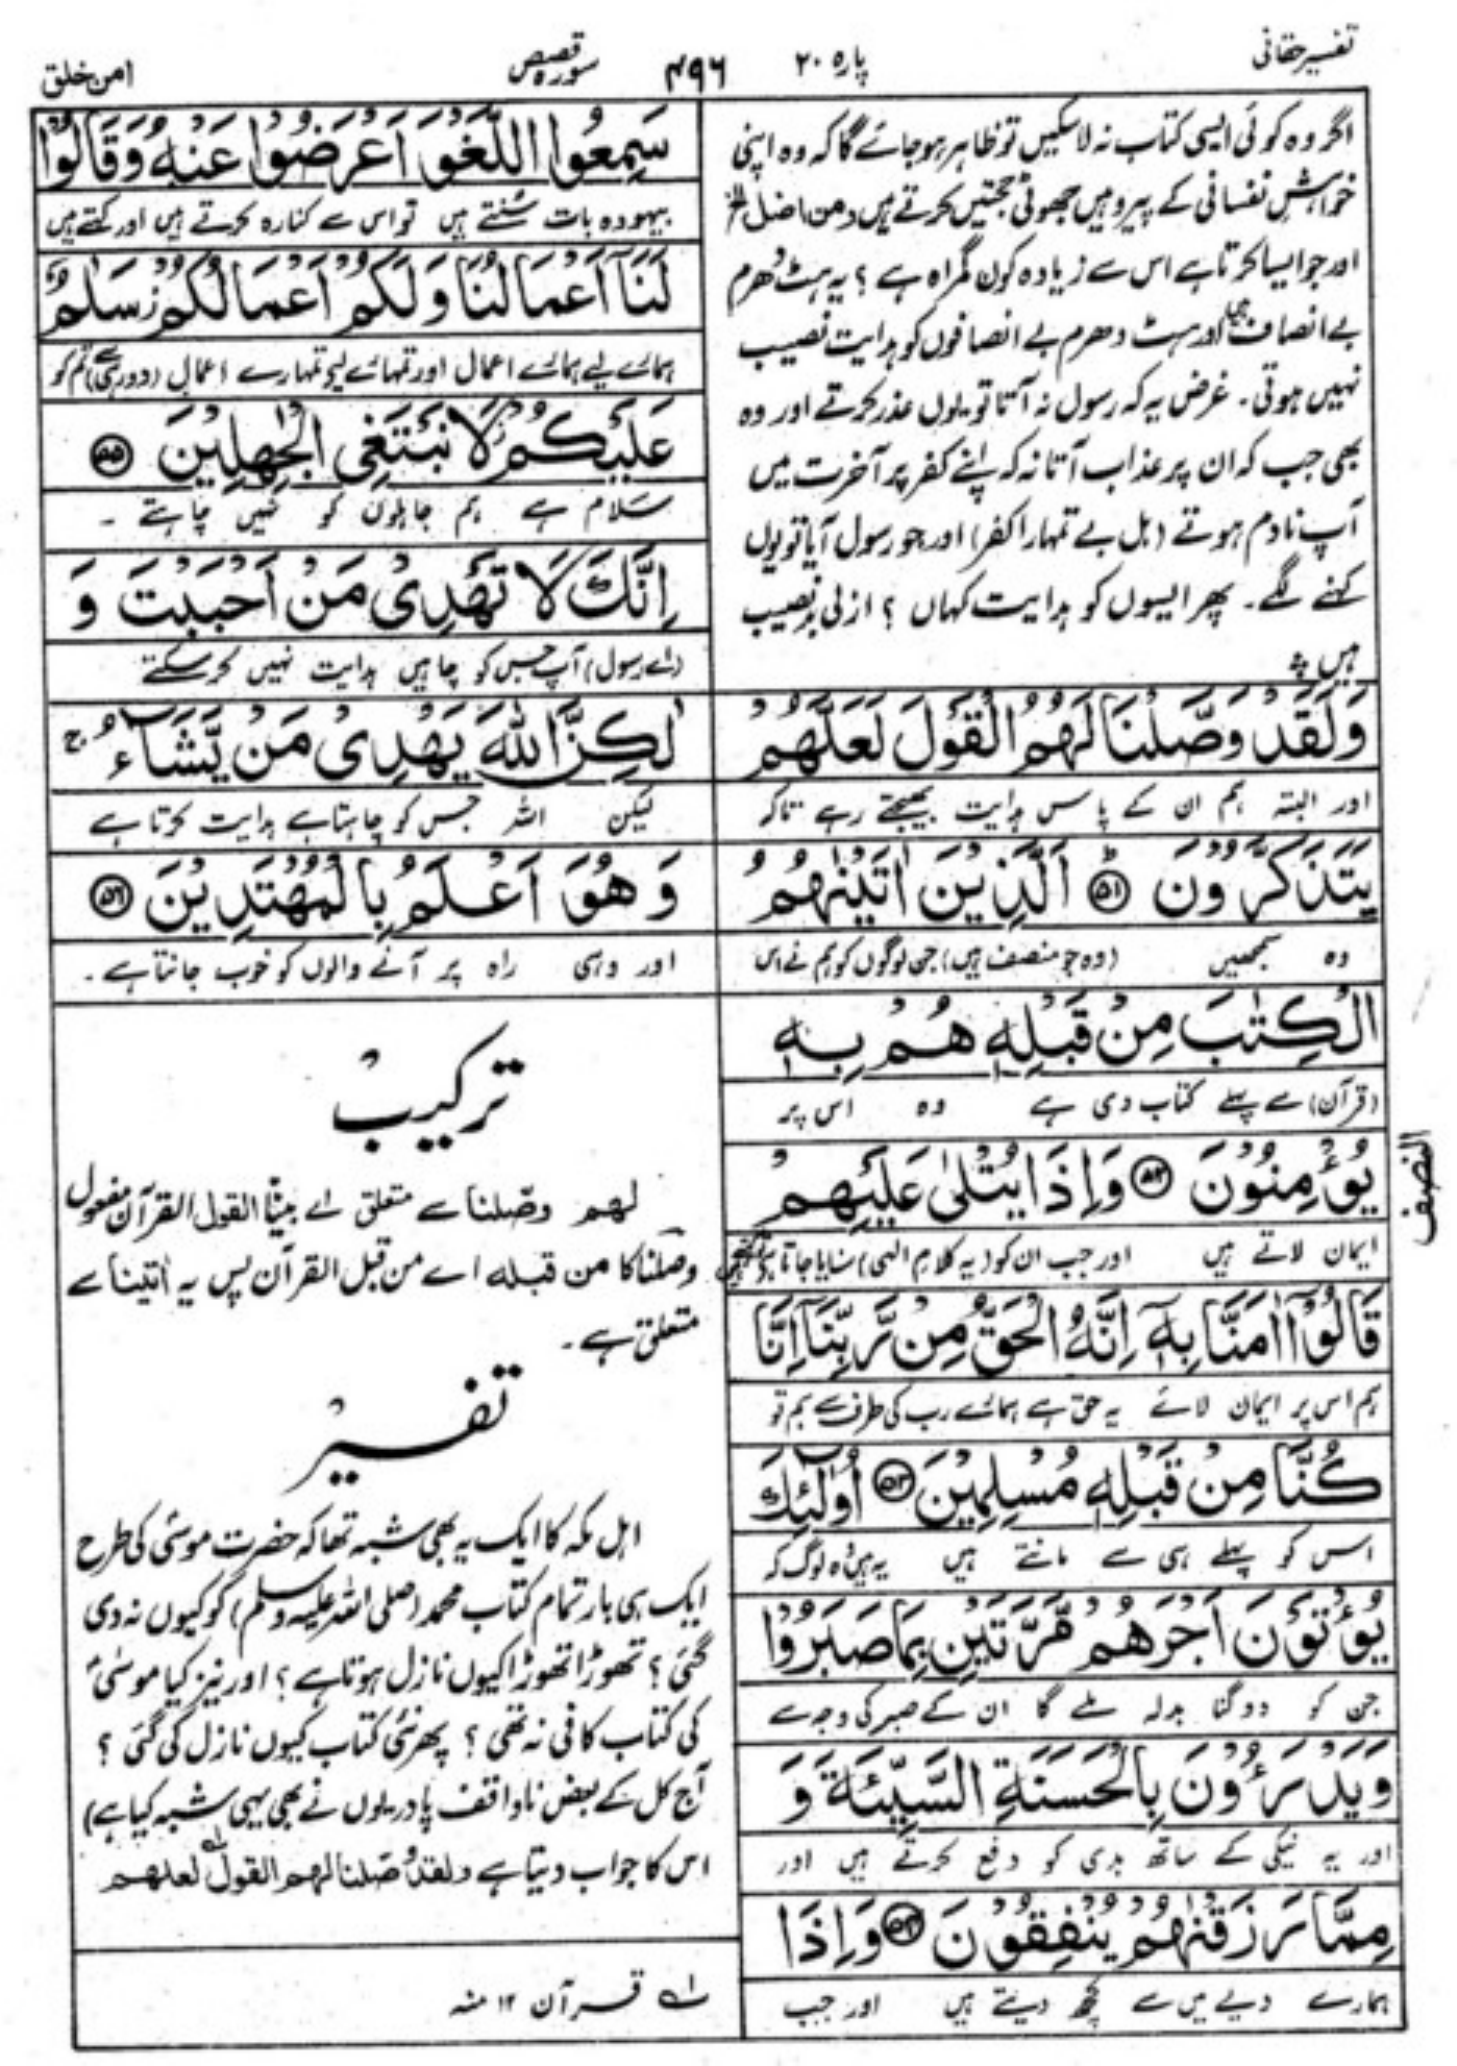 تفسیر حقانی
پارہ ۲۰
۴۹۶
سورہ قصص
امن خلق
اگر وہ کوئی ایسی کتاب نہ لا سکیں تو ظاہر ہو جائے گا کہ وہ اپنی
خواہش نفسانی کے پیرو ہیں جھوٹی حجتیں کرتے ہیں ومن اضل الخ
اور جو ایسا کرتا ہے اس سے زیادہ کون گمراہ ہے ؟ یہ ہٹ دھرم
بے انصاف ہیں اور ہٹ دھرم بے انصافوں کو ہدایت نصیب
نہیں ہوتی۔ غرض یہ کہ رسول نہ آتا تو یوں عذر کرتے اور وہ
بھی جب کہ ان پر عذاب آتا نہ کہ اپنے کفر پر آخرت میں
آپ نادم ہوتے (بل بے تمہارا کفر) اور جو رسول آیا تو یوں
کہنے لگے۔ پھر ایسوں کو ہدایت کہاں ؟ ازلی بدنصیب
ہیں
وَلَقَدْ وَصَّلْنَا لَهُمُ الْقَوْلَ لَعَلَّهُمْ
اور البتہ ہم ان کے پاس ہدایت بھیجتے رہے تاکہ
يَتَذَكَّرُوْنَ ﴿۵۱﴾ اَلَّذِيْنَ اٰتَيْنٰهُمُ
وہ سمجھیں (وہ جو منصف ہیں) جن لوگوں کو ہم نے اس
الْكِتٰبَ مِنْ قَبْلِهٖ هُمْ بِهٖ
(قرآن) سے پہلے کتاب دی ہے وہ اس پر
يُؤْمِنُوْنَ ﴿۵۲﴾ وَاِذَا يُتْلٰى عَلَيْهِمْ
النصف
ایمان لاتے ہیں اور جب ان کو (یہ کلام الٰہی) سنایا جاتا
قَالُوْٓا اٰمَنَّا بِهٖٓ اِنَّهُ الْحَقُّ مِنْ رَّبِّنَآ اِنَّا
ہم اس پر ایمان لائے یہ حق ہے ہمارے رب کی طرف سے ہم تو
كُنَّا مِنْ قَبْلِهٖ مُسْلِمِيْنَ ﴿۵۳﴾ اُولٰٓئِكَ
اس کو پہلے ہی سے مانتے ہیں یہ ہی وہ لوگ کہ
يُؤْتَوْنَ اَجْرَهُمْ مَّرَّتَيْنِ بِمَا صَبَرُوْا
جن کو دوگنا بدلہ ملے گا ان کے صبر کی وجہ سے
وَيَدْرَءُوْنَ بِالْحَسَنَةِ السَّيِّئَةَ وَ
اور یہ نیکی کے ساتھ بدی کو دفع کرتے ہیں اور
مِمَّا رَزَقْنٰهُمْ يُنْفِقُوْنَ ﴿۵۴﴾ وَاِذَا
ہمارے دیے میں سے کچھ دیتے ہیں اور جب
سَمِعُوا اللَّغْوَ اَعْرَضُوْا عَنْهُ وَقَالُوْا
بیہودہ بات سُنتے ہیں تو اس سے کنارہ کرتے ہیں اور کہتے ہیں
لَنَآ اَعْمَالُنَا وَلَكُمْ اَعْمَالُكُمْ ز سَلٰمٌ
ہمارے لیے ہمارے اعمال اور تمہارے لیے تمہارے اعمال (دور ہی سے) تم کو
عَلَيْكُمْ ز لَا نَبْتَغِي الْجٰهِلِيْنَ ﴿۵۵﴾
سلام ہے ہم جاہلوں کو نہیں چاہتے ۔
اِنَّكَ لَا تَهْدِيْ مَنْ اَحْبَبْتَ وَ
(اے رسول) آپ جس کو چاہیں ہدایت نہیں کر سکتے
لٰكِنَّ اللّٰهَ يَهْدِيْ مَنْ يَّشَآءُ ج
لیکن اللہ جس کو چاہتا ہے ہدایت کرتا ہے
وَهُوَ اَعْلَمُ بِالْمُهْتَدِيْنَ ﴿۵۶﴾
اور وہی راہ پر آنے والوں کو خوب جانتا ہے ۔
ترکیب
لھم وصّلنا سے متعلق اے بیّنّا القول القرآن مفعول
وصلنا کا من قبلہ اے من قبل القرآن پس یہ اٰتینا سے
متعلق ہے ۔
تفسیر
اہل مکہ کا ایک یہ بھی شبہ تھا کہ حضرت موسیٰ کی طرح
ایک ہی بار تمام کتاب محمد (صلی اللہ علیہ وسلم) کو کیوں نہ دی
گئی ؟ تھوڑا تھوڑا کیوں نازل ہوتا ہے ؟ اور نیز کیا موسیٰؑ
کی کتاب کافی نہ تھی ؟ پھر نئی کتاب کیوں نازل کی گئی ؟
آج کل کے بعض ناواقف پادریوں نے بھی یہی شبہ کیا ہے)
اس کا جواب دیتا ہے ولقد وصّلنا لھم القول؎۱ لعلھم
؎۱ قرآن ۱۲ منہ